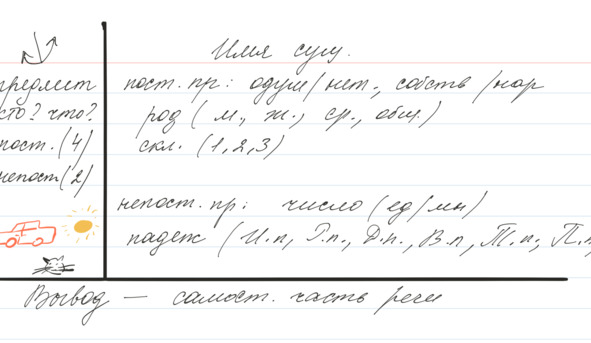 Имя сущ.
предмет
кто? что?
пост. (4)
непост (2)
пост. пр: одуш/нет., собств/нар
род (м., ж., ср., общ.)
скл. (1, 2, 3)
непост. пр: число (ед/мн)
падеж (И.п, Р.п., Д.п., В.п, Т.п; П.п
Вывод — самост. часть речи